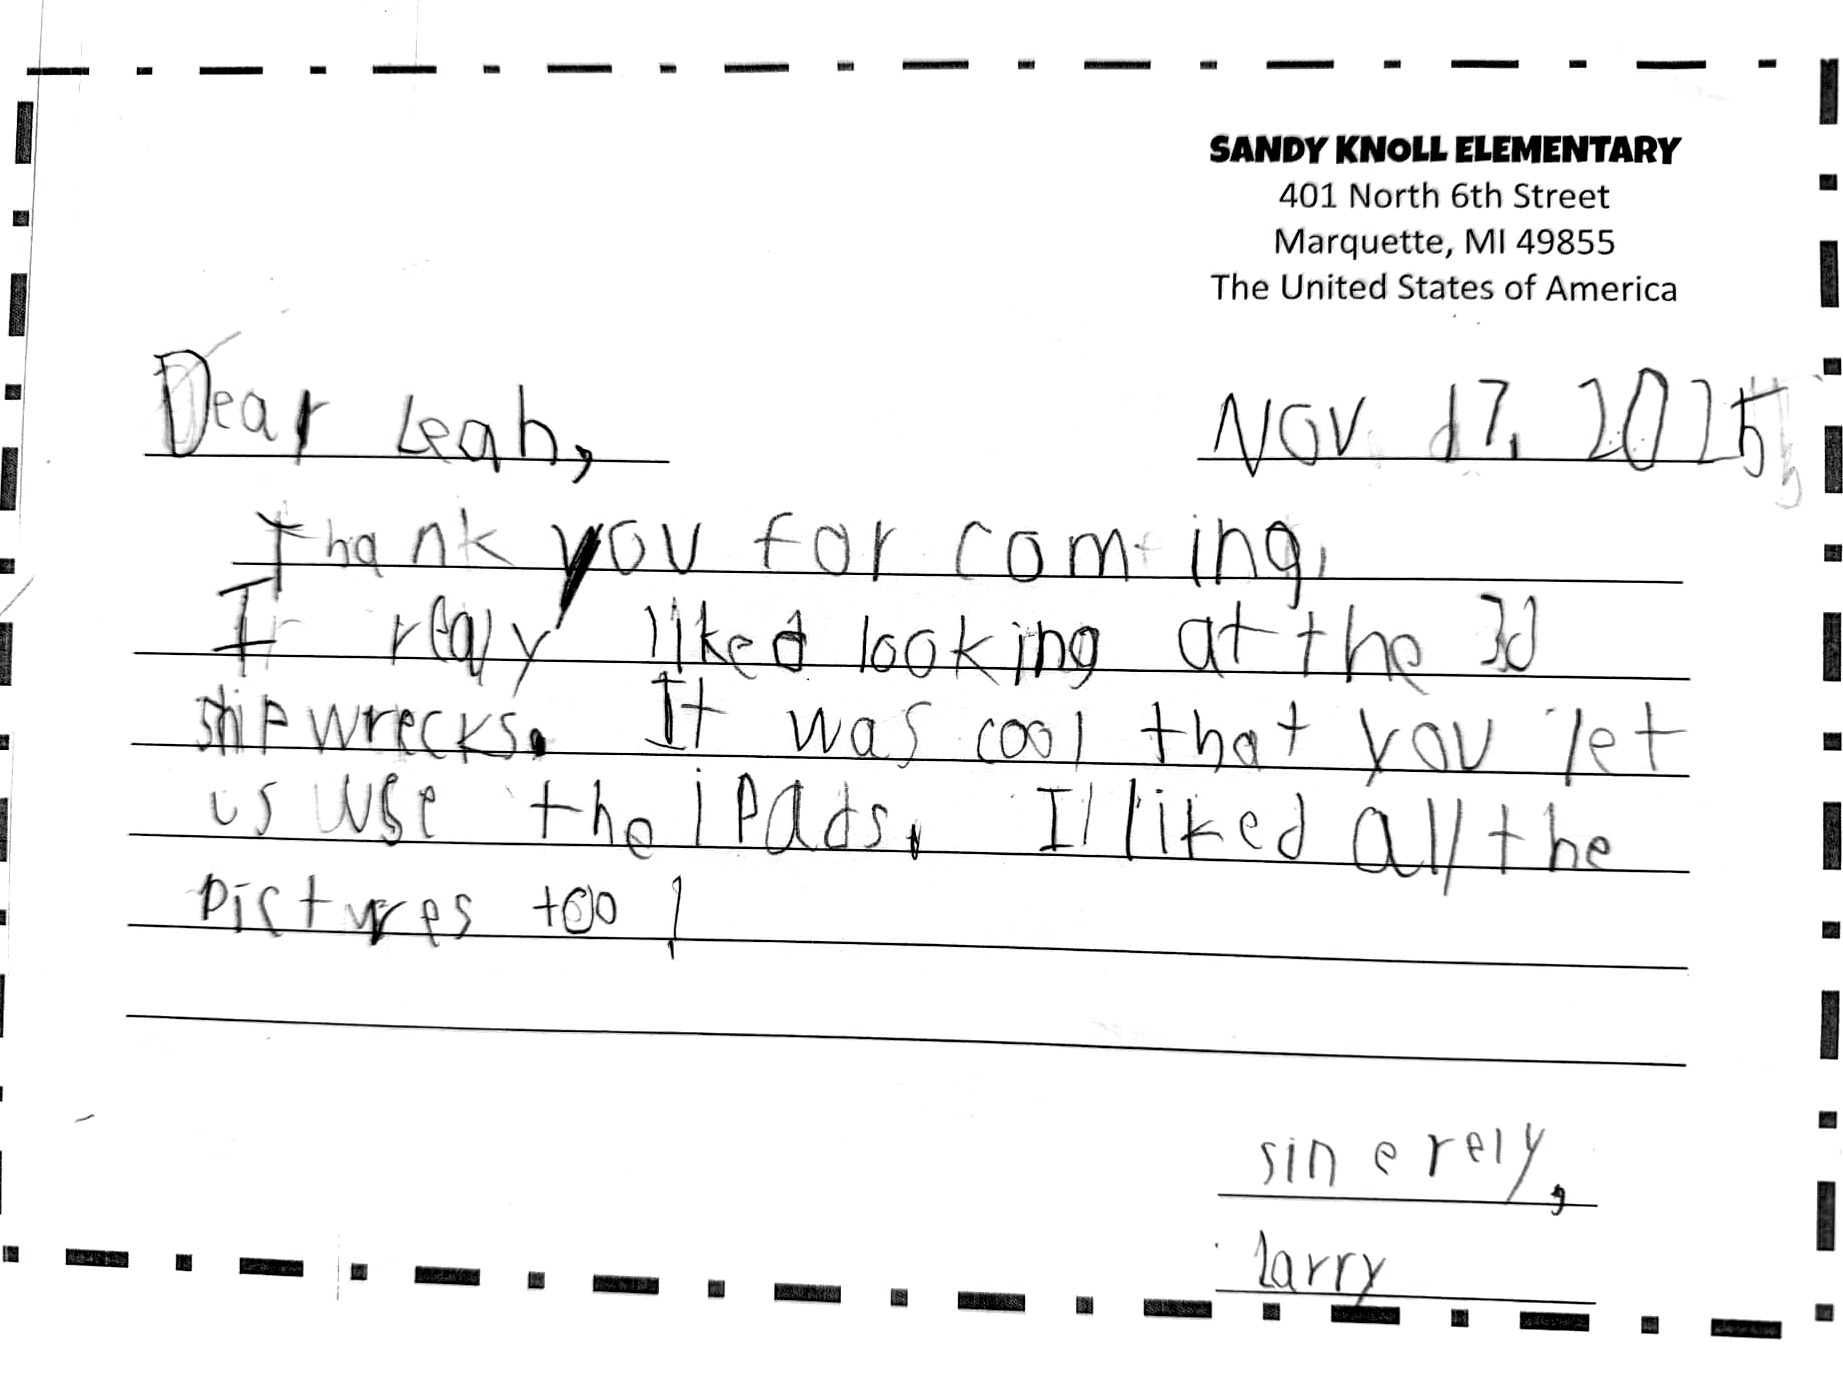 SANDY KNOLL ELEMENTARY
401 North 6th Street
Marquette, MI 49855
The United States of America
Dear Leah,
Nov. 17, 2025
Thank you for coming.
I realy liked looking at the 3d
shipwrecks. It was cool that you let
us use the iPads. I liked all the
pictures too!
sinerely,
larry